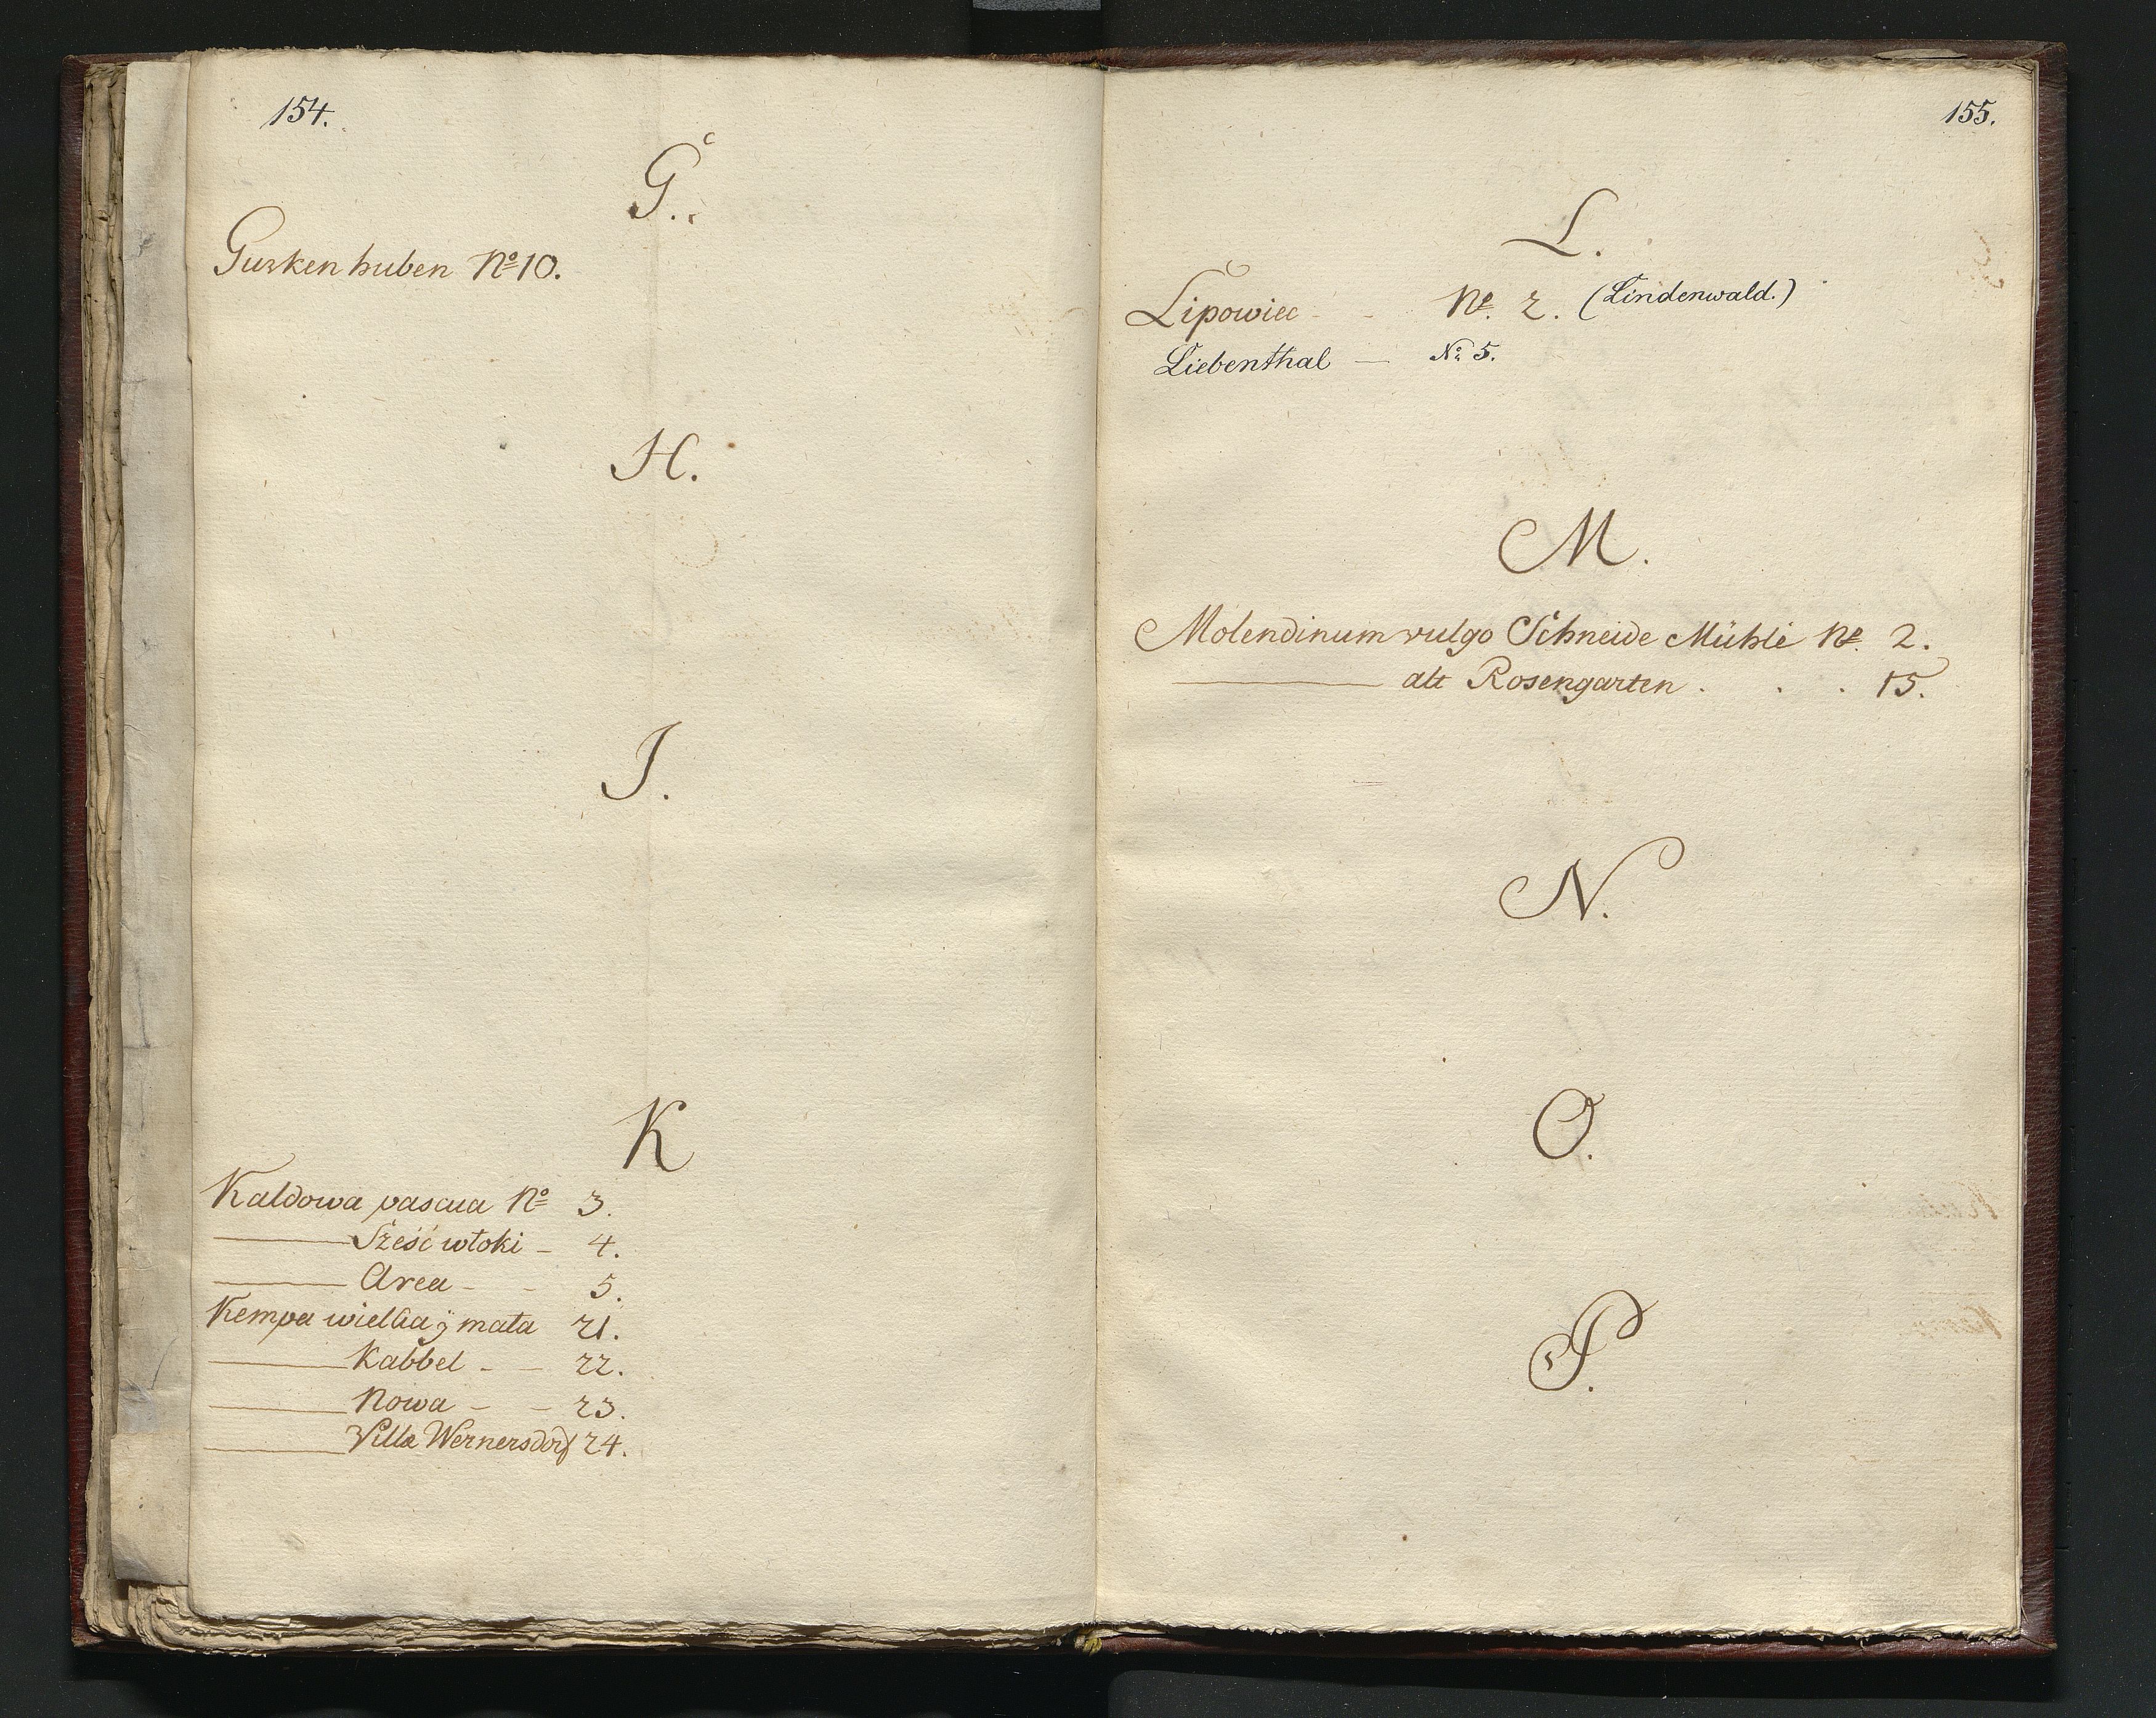 154.
G.
Gurken huben No 10.
H.
J.
K
Kaldowa pascua No 3.
——— Sześć włoki – 4.
——— Area – – 5.
Kempa wielka ÿ mała 21.
——— Kabbel – – 22.
——— Nowa – – 23.
——— Villa Wernersdorf 24.
155.
L.
Lipowiec – – No. 2. (Lindenwald.)
Liebenthal — No. 5.
M.
Molendinum vulgo Schneide Mühle No. 2.
——— alt Rosengarten . . . 15.
N.
O.
P.